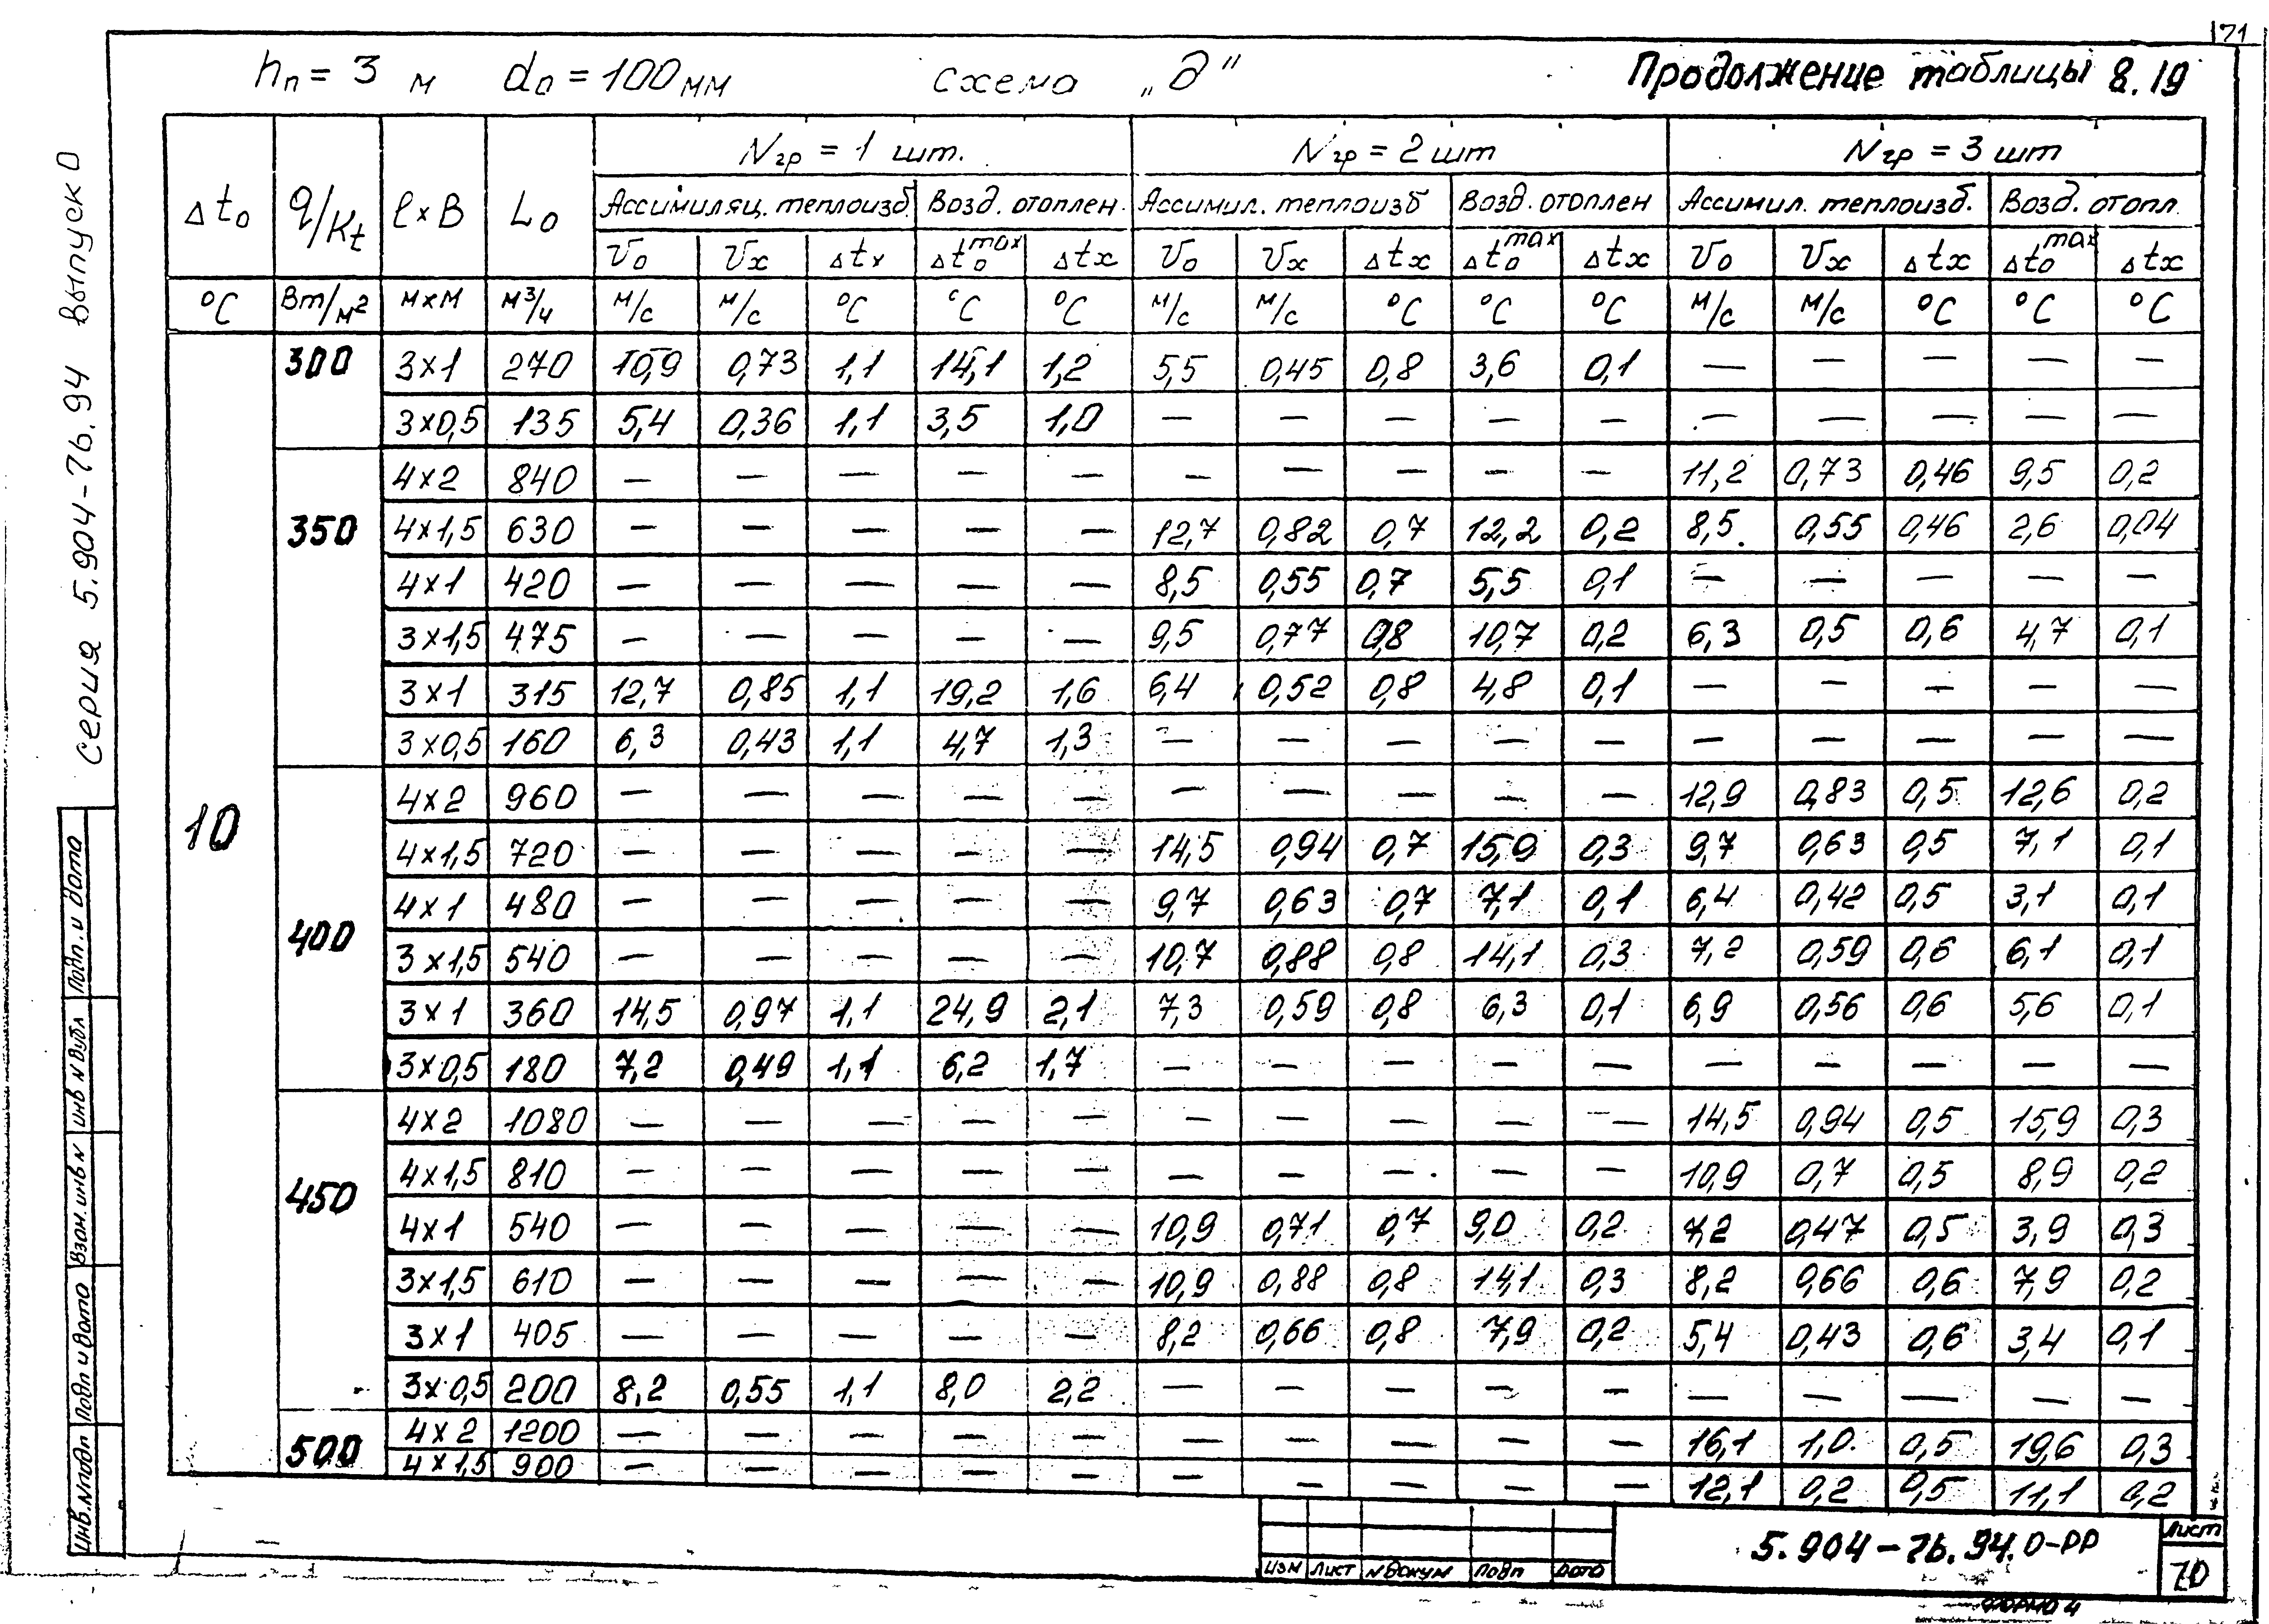 71
hп = 3 м dо = 100 мм схема „д" Продолжение таблицы 8.19
Δtо q/Kt l×B Lо Nгр = 1 шт. Nгр = 2 шт Nгр = 3 шт
Ассимиляц. теплоизб. Возд. отоплен. Ассимил. теплоизб Возд. отоплен Ассимил. теплоизб. Возд. отопл.
Vо Vх Δtх Δtоmax Δtх Vо Vх Δtх Δtоmax Δtх Vо Vх Δtх Δtоmax Δtх
°C Вт/м² м×м м³/ч м/с м/с °C °C °C м/с м/с °C °C °C м/с м/с °C °C °C
10
300 3×1 270 10,9 0,73 1,1 14,1 1,2 5,5 0,45 0,8 3,6 0,1 — — — — —
3×0,5 135 5,4 0,36 1,1 3,5 1,0 — — — — — — — — — —
350 4×2 840 — — — — — — — — — — 11,2 0,73 0,46 9,5 0,2
4×1,5 630 — — — — — 12,7 0,82 0,7 12,2 0,2 8,5 0,55 0,46 2,6 0,04
4×1 420 — — — — — 8,5 0,55 0,7 5,5 0,1 — — — — —
3×1,5 475 — — — — — 9,5 0,77 0,8 10,7 0,2 6,3 0,5 0,6 4,7 0,1
3×1 315 12,7 0,85 1,1 19,2 1,6 6,4 0,52 0,8 4,8 0,1 — — — — —
3×0,5 160 6,3 0,43 1,1 4,7 1,3 — — — — — — — — — —
400 4×2 960 — — — — — — — — — — 12,9 0,83 0,5 12,6 0,2
4×1,5 720 — — — — — 14,5 0,94 0,7 15,9 0,3 9,7 0,63 0,5 7,1 0,1
4×1 480 — — — — — 9,7 0,63 0,7 7,1 0,1 6,4 0,42 0,5 3,1 0,1
3×1,5 540 — — — — — 10,7 0,88 0,8 14,1 0,3 7,2 0,59 0,6 6,1 0,1
3×1 360 14,5 0,97 1,1 24,9 2,1 7,3 0,59 0,8 6,3 0,1 6,9 0,56 0,6 5,6 0,1
3×0,5 180 7,2 0,49 1,1 6,2 1,7 — — — — — — — — — —
450 4×2 1080 — — — — — — — — — — 14,5 0,94 0,5 15,9 0,3
4×1,5 810 — — — — — — — — — — 10,9 0,7 0,5 8,9 0,2
4×1 540 — — — — — 10,9 0,71 0,7 9,0 0,2 7,2 0,47 0,5 3,9 0,3
3×1,5 610 — — — — — 10,9 0,88 0,8 14,1 0,3 8,2 0,66 0,6 7,9 0,2
3×1 405 — — — — — 8,2 0,66 0,8 7,9 0,2 5,4 0,43 0,6 3,4 0,1
3×0,5 200 8,2 0,55 1,1 8,0 2,2 — — — — — — — — — —
500 4×2 1200 — — — — — — — — — — 16,1 1,0 0,5 19,6 0,3
4×1,5 900 — — — — — — — — — — 12,1 0,2 0,5 11,1 0,2
серия 5.904-76.94 выпуск 0
Подп. и дата
инв N дубл
Взам. инв N
Подп и дата
Инв. N подп
изм лист N докум подп дата
5.904-76.94.0-РР
лист
70
формо 4